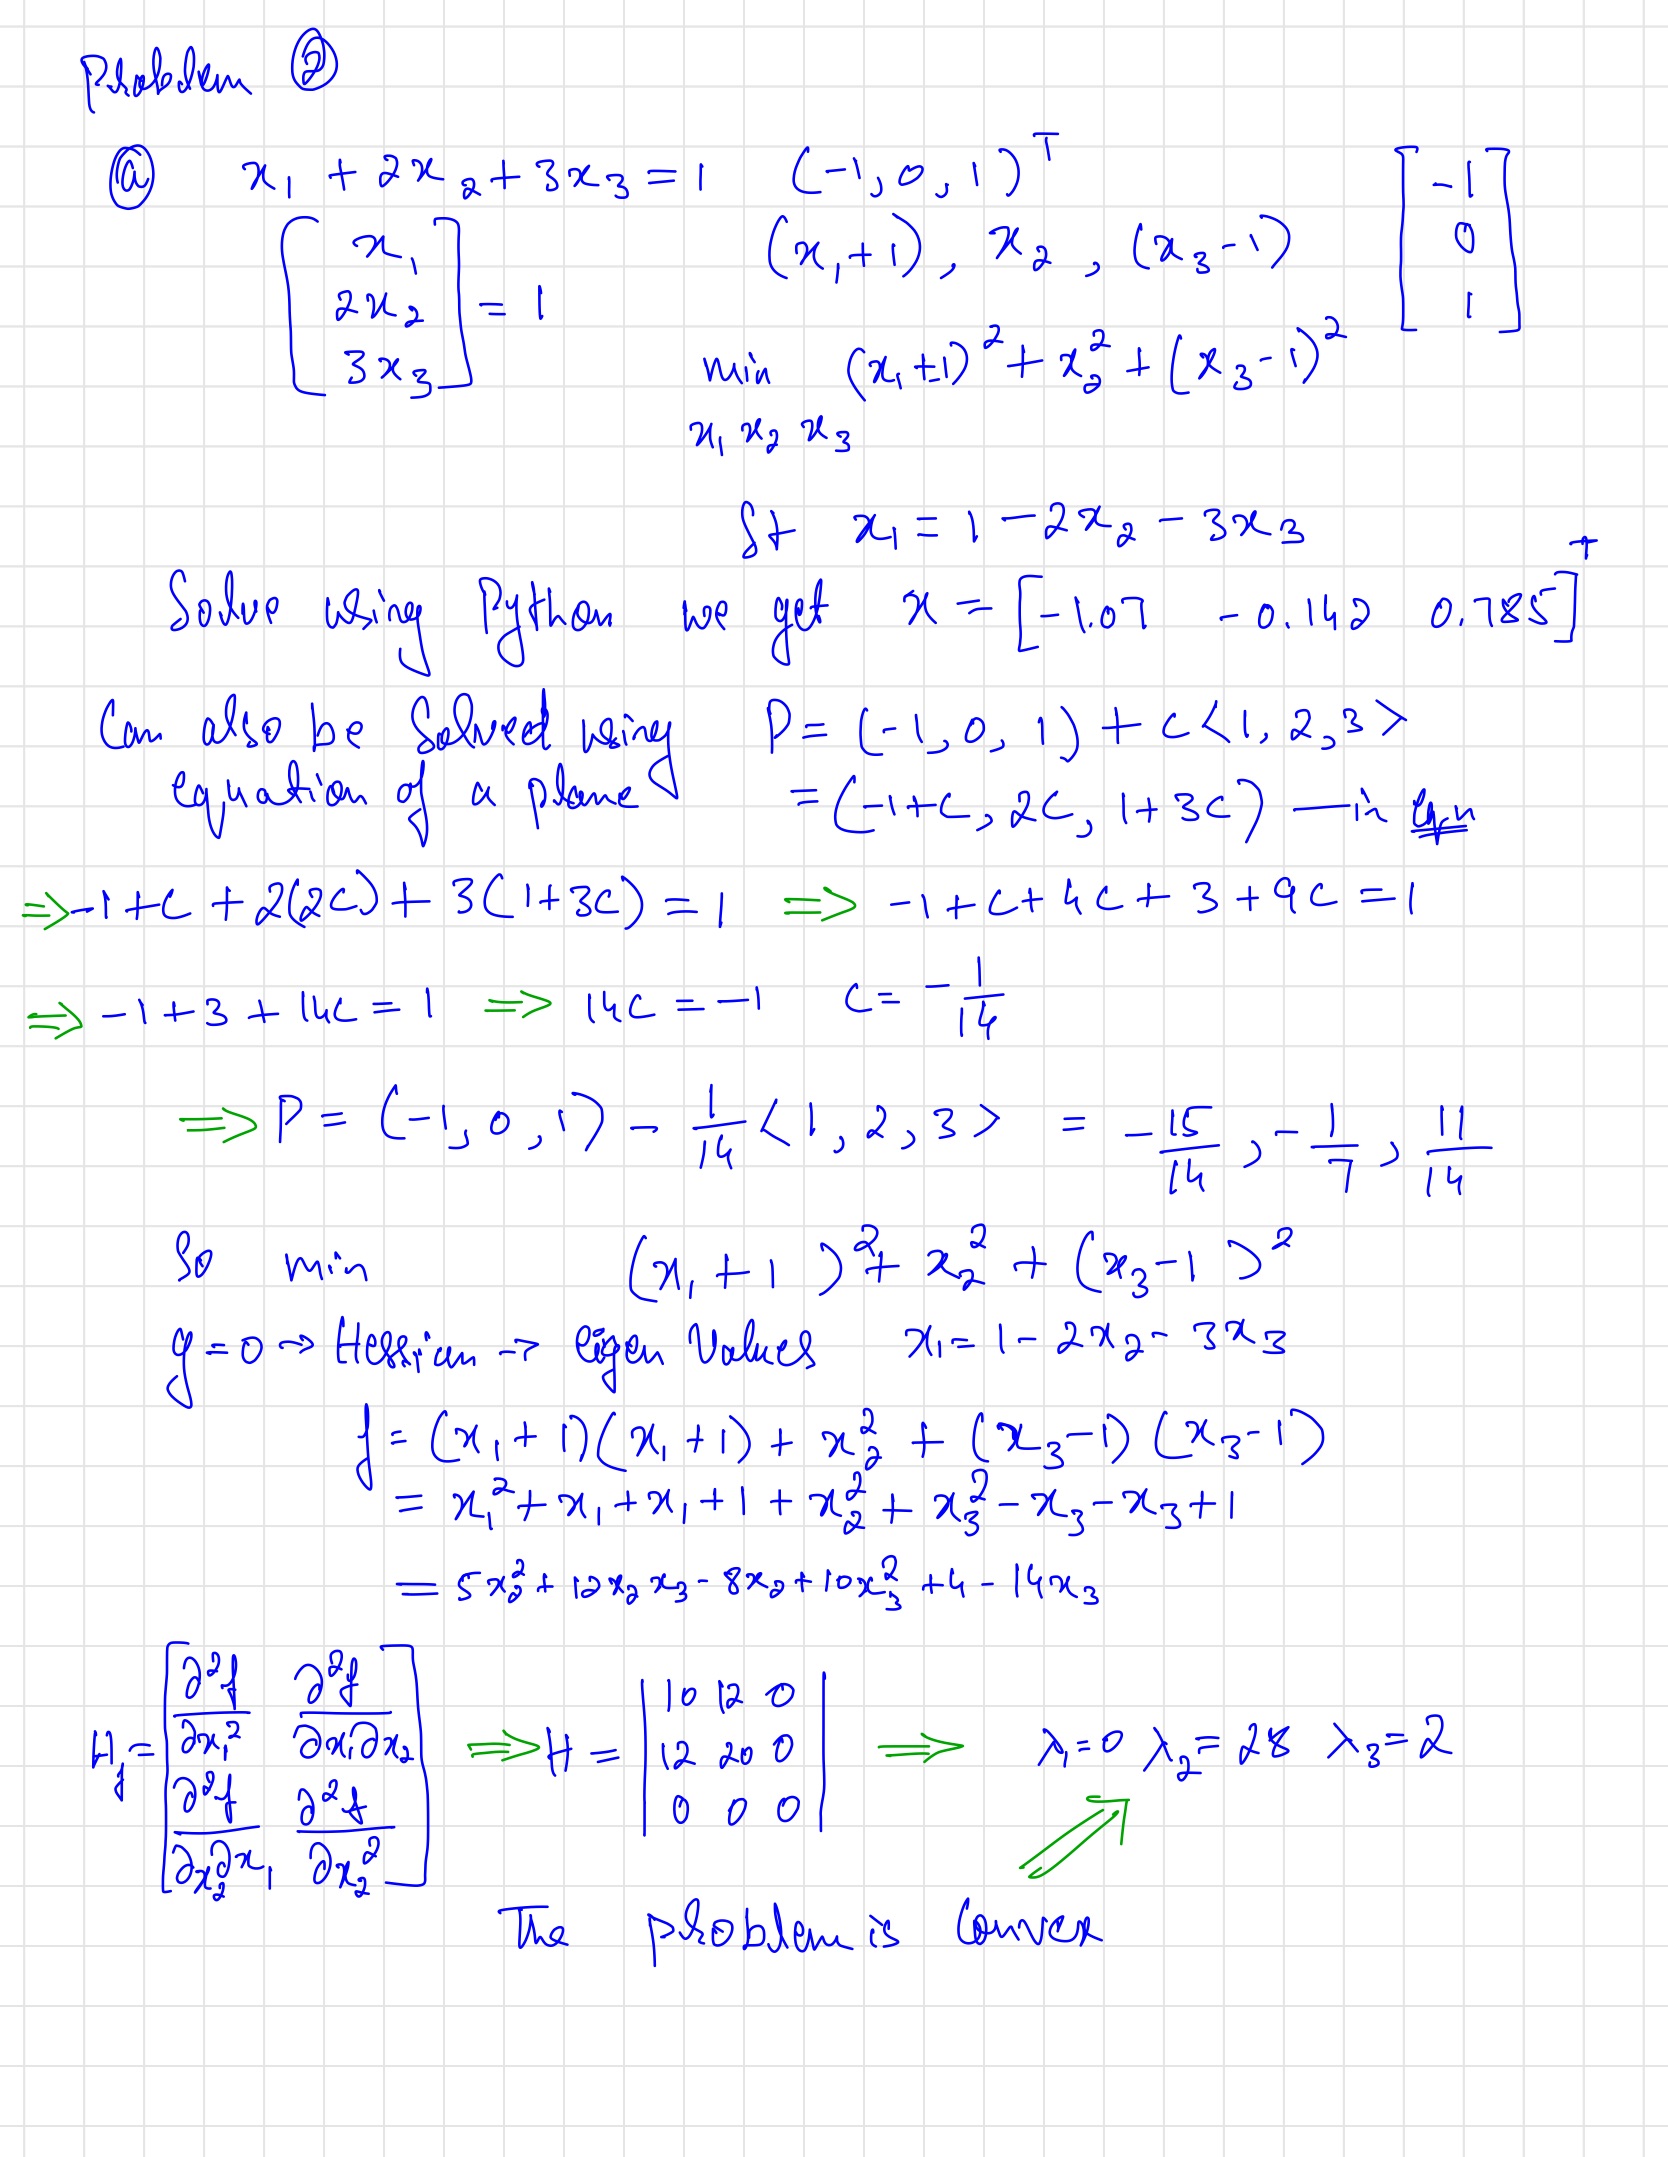 Problem ②
ⓐ x₁ + 2x₂ + 3x₃ = 1 (-1, 0, 1)ᵀ [-1 0 1]
[x₁ 2x₂ 3x₃] = 1 (x₁+1), x₂, (x₃-1)
min (x₁+1)² + x₂² + (x₃-1)²
x₁ x₂ x₃
St x₁ = 1 - 2x₂ - 3x₃
Solve using Python we get x = [-1.07 -0.142 0.785]ᵀ
Can also be Solved using P = (-1, 0, 1) + c<1, 2, 3>
equation of a plane = (-1+c, 2c, 1+3c) — in eqn
⇒ -1+c + 2(2c) + 3(1+3c) = 1 ⇒ -1+c+4c+3+9c = 1
⇒ -1+3+14c = 1 ⇒ 14c = -1 c = -1/14
⇒ P = (-1, 0, 1) - 1/14 <1, 2, 3> = -15/14, -1/7, 11/14
So min (x₁+1)² + x₂² + (x₃-1)²
g=0 → Hessian → eigen Values x₁ = 1 - 2x₂ - 3x₃
f = (x₁+1)(x₁+1) + x₂² + (x₃-1)(x₃-1)
= x₁² + x₁ + x₁ + 1 + x₂² + x₃² - x₃ - x₃ + 1
= 5x₂² + 12x₂x₃ - 8x₂ + 10x₃² + 4 - 14x₃
H_f = [∂²f/∂x₁² ∂²f/∂x₁∂x₂ ∂²f/∂x₂∂x₁ ∂²f/∂x₂²] ⇒ H = |10 12 0 12 20 0 0 0 0| ⇒ λ₁=0 λ₂=28 λ₃=2
The problem is Convex